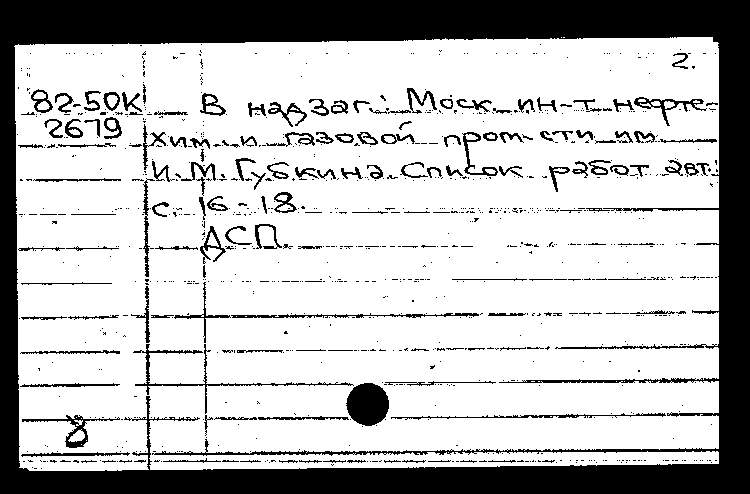 2.
82-50К В надзаг.: Моск. ин-т нефте-
2679 хим. и газовой пром-сти им.
И. М. Губкина. Список работ авт.:
с. 16-18.
ДСП.
8